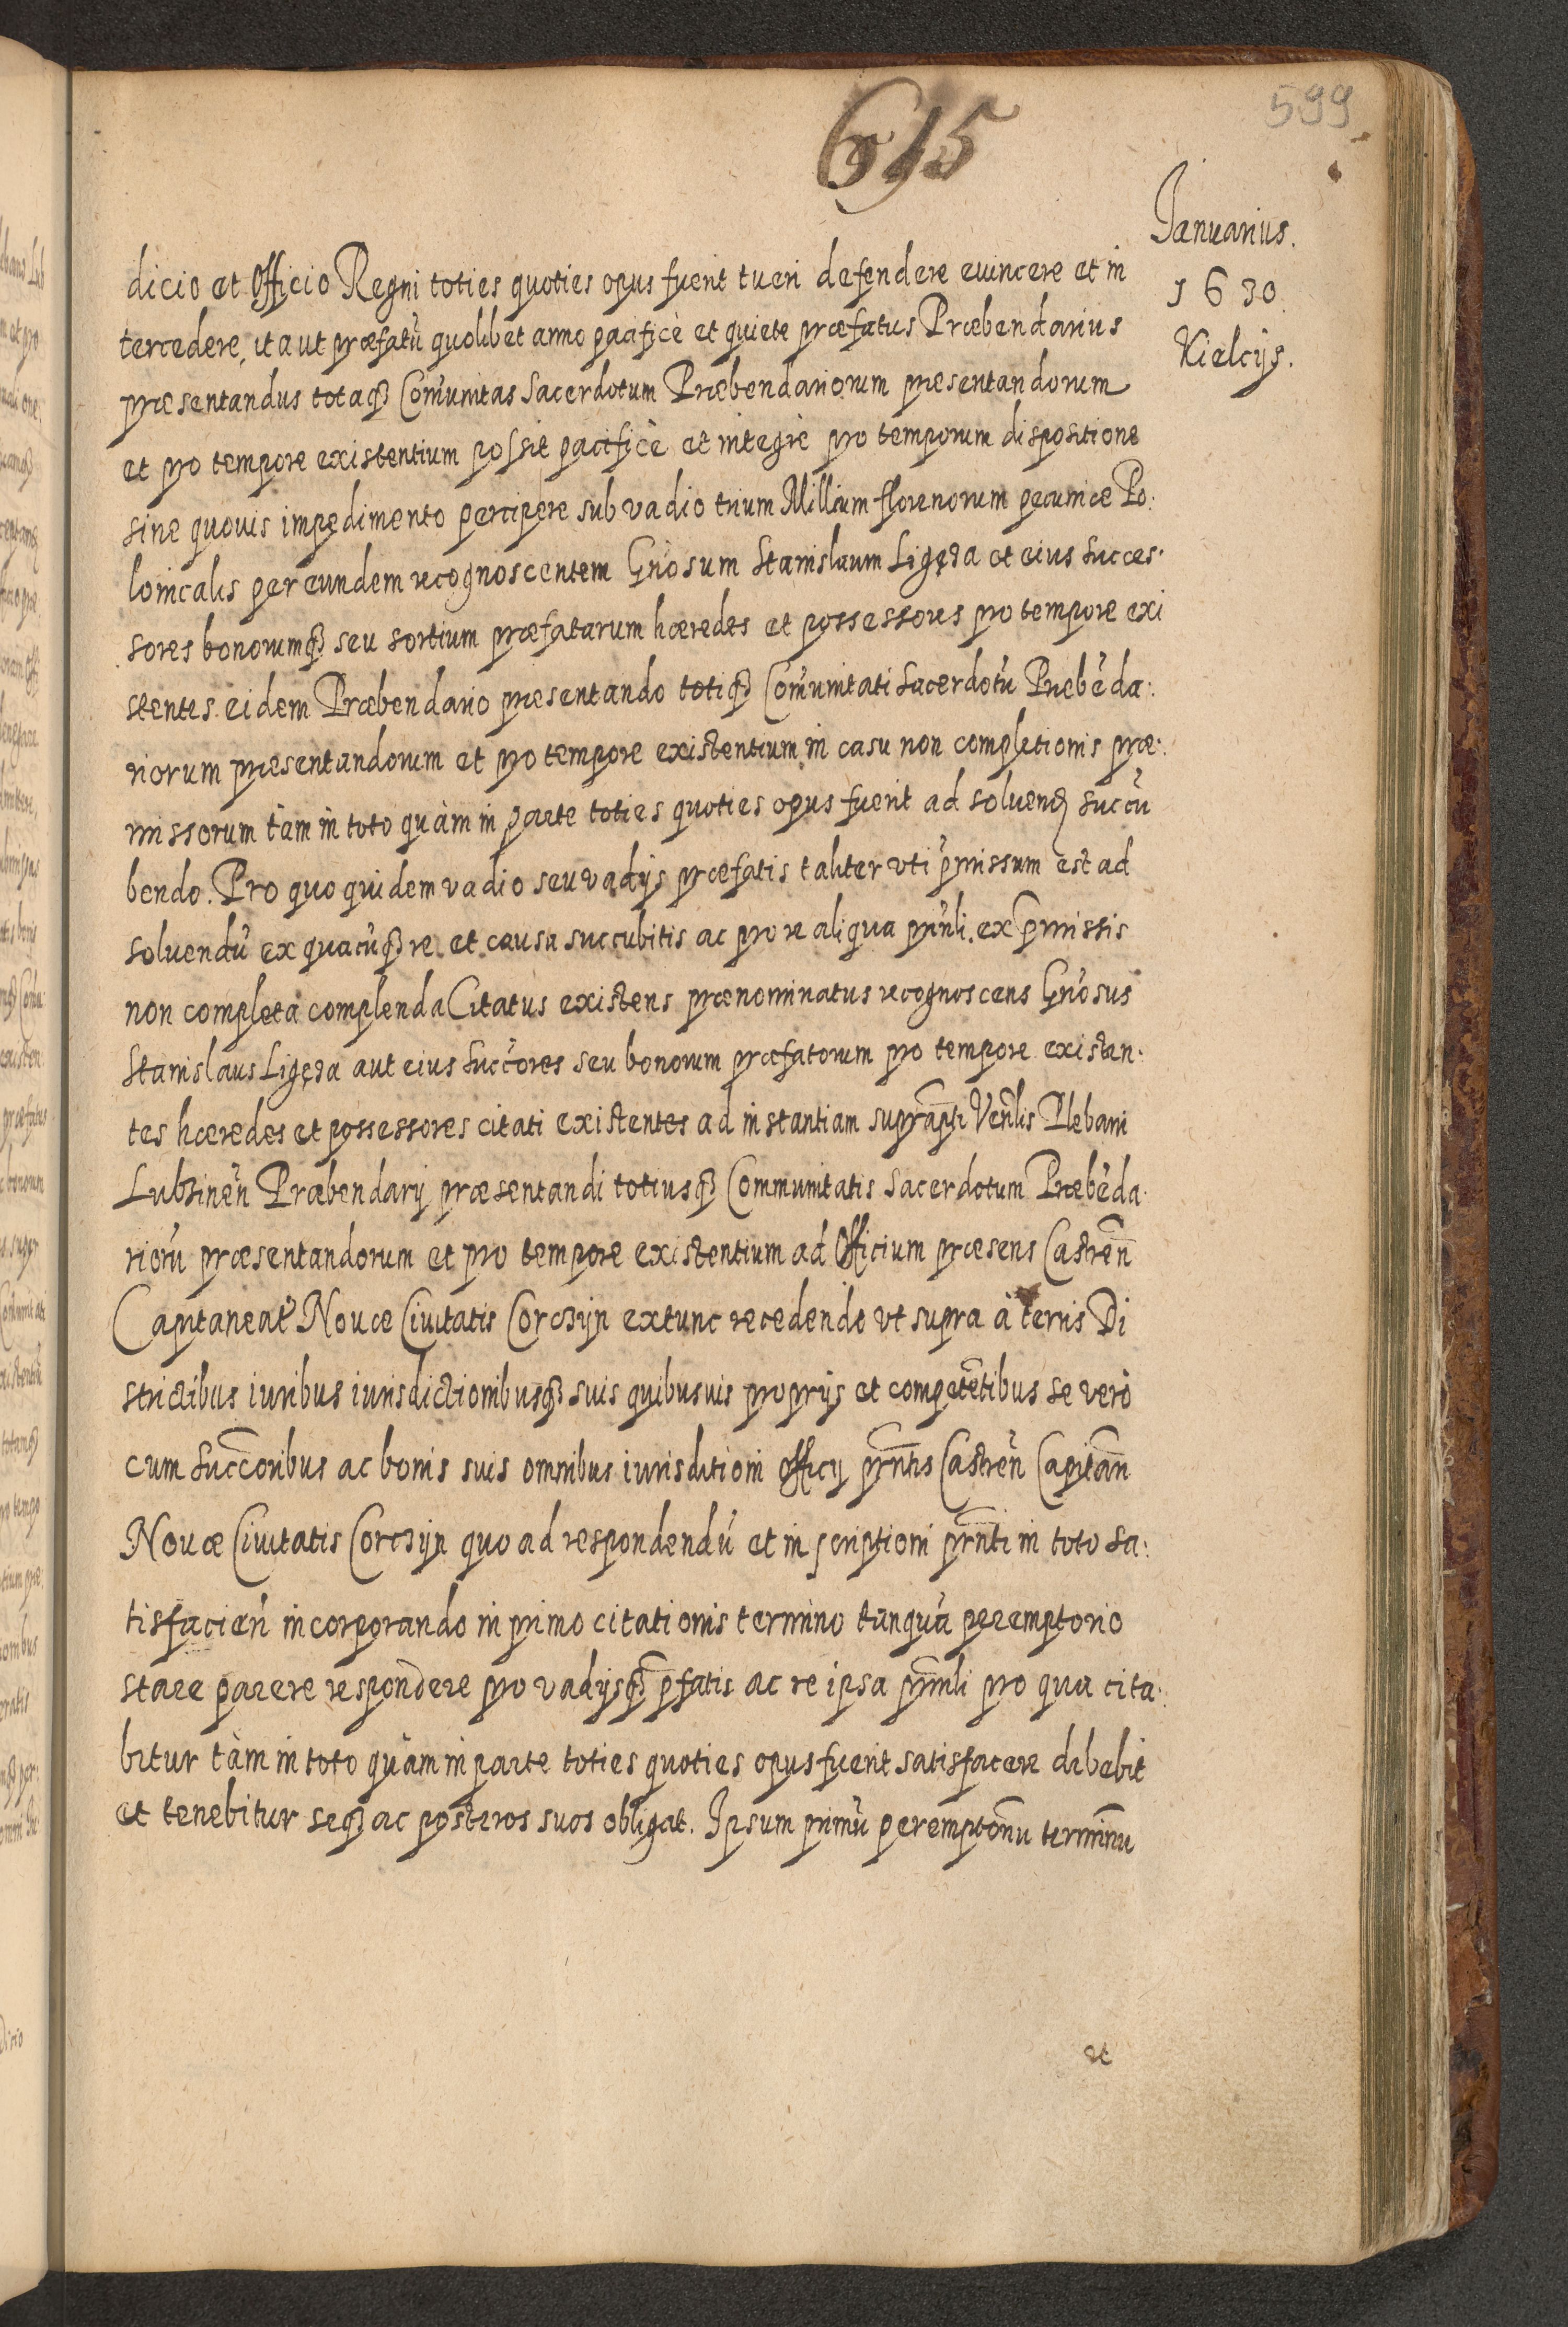 599
615
Januarius.
1630.
Kielcijs.
dicio et Officio Regni toties quoties opus fuerit tueri defendere euincere et in
tercedere, ita ut præfatũ quolibet anno pacificè et quiete præfatus Præbendarius
præsentandus totaqȝ Com̃unitas Sacerdotum Præbendariorum præsentandorum
et pro tempore existentium possit pacificè et integrè pro temporum dispositione
sine quouis impedimento percipere sub vadio trium Millium florenorum pecuniæ Po:
lonicalis per eundem recognoscentem Gñosum Stanislaum Ligęza et eius Succes:
sores bonorumqȝ seu sortium præfatarum hæredes et possessores pro tempore exi
stentes eidem Præbendario præsentando totiqȝ Com̃unitati Sacerdotũ Præbẽda:
riorum præsentandorum et pro tempore existentium in casu non completionis præ:
missorum tàm in toto quàm in parte toties quoties opus fuerit ad soluend Succũ
bendo. Pro quo quidem vadio seu vadijs præfatis taliter vti p̃missum est ad
soluendũ ex quacũqȝ re et causa succubitis ac pro re aliqua prñli. ex p̃missis
non completa complenda Citatus existens prænominatus recognoscens Gñosus
Stanislaus Ligęza aut eius Succ̃ores seu bonorum præfatorum pro tempore existen:
tes hæredes et possessores citati existentes ad instantiam supraptĩ Veñlis Plebani
Lubzineñ Præbendarij præsentandi totiusqȝ Communitatis Sacerdotum Præbẽda:
riorũ præsentandorum et pro tempore existentium ad Officium præsens Castreñ
Capitaneat9 Nouæ Ciuitatis Corczijn extunc recedendo vt supra à terris Di
strictibus iuribus iurisdictionibusqȝ suis quibusuis proprijs et competẽtibus se verò
cum Succ̃oribus ac bonis suis omnibus iurisditioni officij prñtis Castreñ Capitañ
Nouæ Ciuitatis Corczijn quo ad respondendũ et inscriptioni prñti in toto sa:
tisfacieñ incorporando in primo citationis termino tanquã peremptorio
stare parere respondere pro vadijsqȝ p̃fatis ac re ipsa prñli pro qua cita:
bitur tàm in toto quàm in parte toties quoties opus fuerit satisfacere debebit
et tenebitur seqȝ ac posteros suos obligat. Ipsum primũ peremptoriũ terminũ
ei